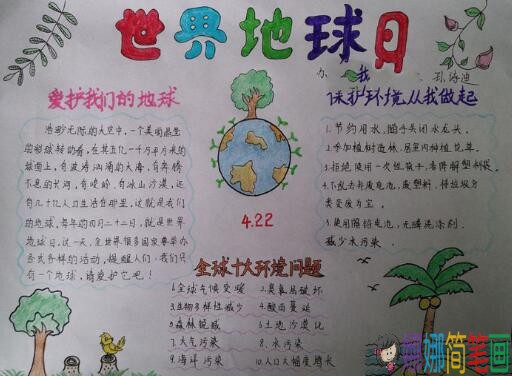 世界地球日
爱护我们的地球
浩瀚无际的太空中，一个美丽晶莹
的彩球转动着，在其五亿一千万平方千米的
球面上，有波涛汹涌的大海，有奔腾
不息的长河，有峻岭，有冰山沙漠，还
有几十亿人口生活在那里，这就是我们
的地球，每年的四月二十二日，就是世界
地球日，这一天，全世界很多国家要举办
各式各样的活动，提醒人们，我们只
有一个地球，请爱护它吧！
4.22
保护环境从我做起
1.节约用水，随手关闭水龙头。
2.参加植树造林，居室内种植花草。
3.拒绝使用一次性筷子，
4.不乱扔弃废电池、废塑料，将垃圾分
类变废为宝。
5.使用脂轻电池，无磷洗涤剂，
减少水污染。
全球十大环境问题
1.全球气候变暖 2.臭氧层破坏
3.生物多样性减少 4.酸雨蔓延
5.森林锐减 6.土地沙漠化
7.大气污染 8.水污染
9.海洋污染 10.人口大幅度增长
娜简笔画